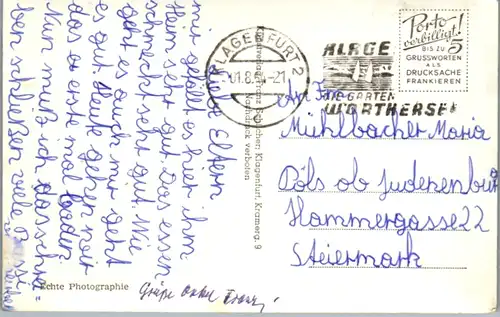 Liebe Eltern
mir gefällt es hier im
Heim sehr gut. Das essen
schmeckt sehr gut. Wie
geht es euch mir geht
es gut. Heute gehen wir
das erste mal baden
Nun muß ich das schrei-
ben schließen viele
Grüße Onkel Franz
Echte Photographie
Klagenfurt, Kramerg. 9
verboten
KLAGENFURT 2
01.8.
-21
WÖRTHERSEE
Porto
verbilligt!
BIS ZU 5
GRUSSWORTEN
ALS
DRUCKSACHE
FRANKIEREN
An Frau
Mühlbacher Maria
Pöls ob Judenburg
Hammergasse 22
Steiermark